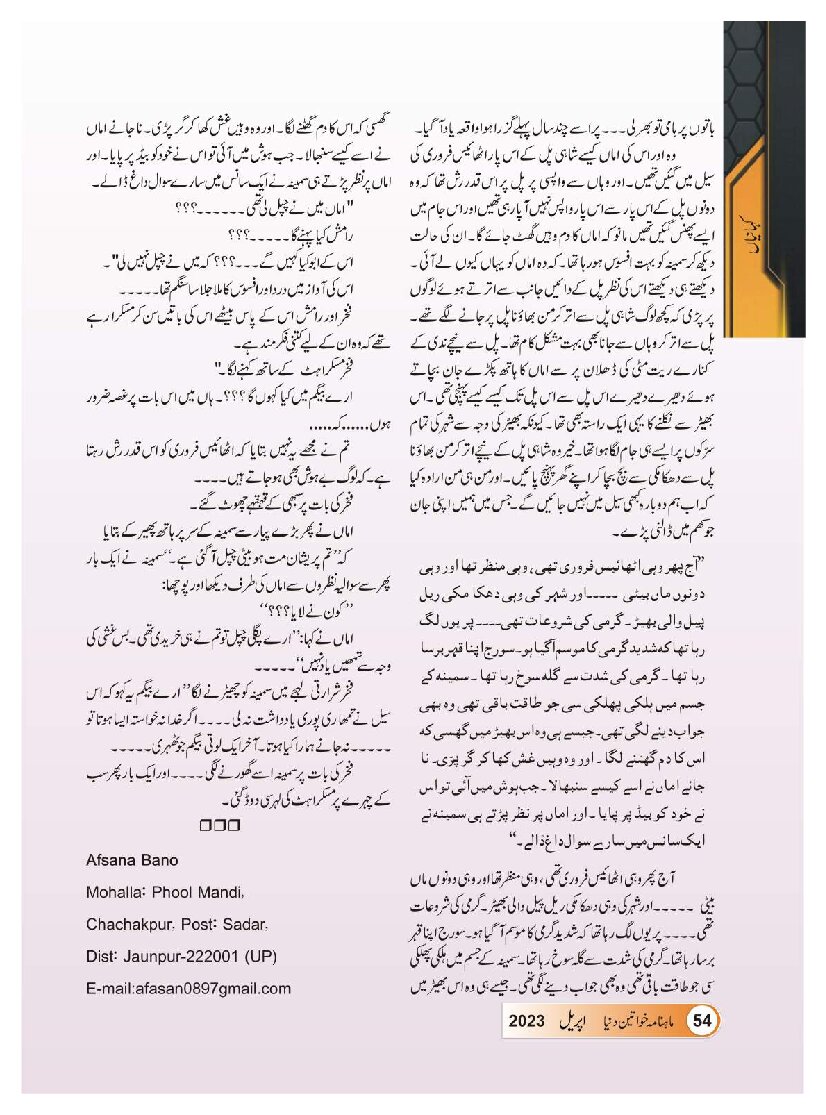 باتوں پر ہامی تو بھر لی۔۔۔ پر اسے چند سال پہلے گزرا ہوا واقعہ یاد آ گیا۔
وہ اور اس کی اماں کیسے شاہی پل کے اس پار اٹھائیس فروری کی
سیل میں گئیں تھیں۔ اور وہاں سے واپسی پر پل پر اس قدر رش تھا کہ وہ
دونوں پل کے اس پار سے اس پار واپس نہیں آ پا رہی تھیں اور اس جام میں
ایسے پھنس گئیں تھیں مانو کہ اماں کا دم وہیں گھٹ جائے گا۔ ان کی حالت
دیکھ کر سمینہ کو بہت افسوس ہو رہا تھا۔ کہ وہ اماں کو یہاں کیوں لے آئی۔
دیکھتے ہی دیکھتے اس کی نظر پل کے دائیں جانب سے اترتے ہوئے لوگوں
پر پڑی کہ کچھ لوگ شاہی پل سے اتر کر من بھاؤنا پل پر جانے لگے تھے۔
پل سے اتر کر وہاں سے جانا بھی بہت مشکل کام تھا۔ پل سے نیچے ندی کے
کنارے ریت مٹی کی ڈھلان پر سے اماں کا ہاتھ پکڑے جان بچاتے
ہوئے دھیرے دھیرے اس پل سے اس پل تک کیسے کیسے پہنچی تھی۔ اس
بھیڑ سے نکلنے کا یہی ایک راستہ بھی تھا۔ کیونکہ بھیڑ کی وجہ سے شہر کی تمام
سڑکوں پر ایسے ہی جام لگا ہوا تھا۔ خیر وہ شاہی پل کے نیچے اتر کر من بھاؤنا
پل سے دھکا مکی سے بچ بچا کر اپنے گھر پہنچ پائیں۔ اور من ہی من ارادہ کیا
کہ اب ہم دوبارہ کبھی سیل میں نہیں جائیں گے۔ جس میں ہمیں اپنی جان
جوکھم میں ڈالنی پڑے۔
”آج پھر وہی اٹھائیس فروری تھی، وہی منظر تھا اور وہی
دونوں ماں بیٹی ۔۔۔۔۔ اور شہر کی وہی دھکا مکی ریل
پیل والی بھیڑ۔ گرمی کی شروعات تھی۔۔۔۔ پر یوں لگ
رہا تھا کہ شدید گرمی کا موسم آ گیا ہو۔ سورج اپنا قہر برسا
رہا تھا۔ گرمی کی شدت سے گلہ سوخ رہا تھا۔ سمینہ کے
جسم میں ہلکی پھلکی سی جو طاقت باقی تھی وہ بھی
جواب دینے لگی تھی۔ جیسے ہی وہ اس بھیڑ میں گھسی کہ
اس کا دم گھٹنے لگا۔ اور وہ وہیں غش کھا کر گر پڑی۔ نا
جانے اماں نے اسے کیسے سنبھالا۔ جب ہوش میں آئی تو اس
نے خود کو بیڈ پر پایا۔ اور اماں پر نظر پڑتے ہی سمینہ نے
ایک سانس میں سارے سوال داغ ڈالے۔“
آج پھر وہی اٹھائیس فروری تھی، وہی منظر تھا اور وہی دونوں ماں
بیٹی ۔۔۔۔۔ اور شہر کی وہی دھکا مکی ریل پیل والی بھیڑ۔ گرمی کی شروعات
تھی۔۔۔۔ پر یوں لگ رہا تھا کہ شدید گرمی کا موسم آ گیا ہو۔ سورج اپنا قہر
برسا رہا تھا۔ گرمی کی شدت سے گلہ سوخ رہا تھا۔ سمینہ کے جسم میں ہلکی پھلکی
سی جو طاقت باقی تھی وہ بھی جواب دینے لگی تھی۔ جیسے ہی وہ اس بھیڑ میں
گھسی کہ اس کا دم گھٹنے لگا۔ اور وہ وہیں غش کھا کر گر پڑی۔ نا جانے اماں
نے اسے کیسے سنبھالا۔ جب ہوش میں آئی تو اس نے خود کو بیڈ پر پایا۔ اور
اماں پر نظر پڑتے ہی سمینہ نے ایک سانس میں سارے سوال داغ ڈالے۔
"اماں میں نے چپل لی تھی۔۔۔۔۔۔؟؟؟
رامش کیا پہنے گا۔۔۔۔۔؟؟؟
اس کے ابو کیا کہیں گے۔۔۔؟؟؟ کہ میں نے چپل نہیں لی"۔
اس کی آواز میں درد اور افسوس کا ملا جلا سا سنگم تھا۔۔۔۔۔
فخر اور رامش اس کے پاس بیٹھے اس کی باتیں سن کر مسکرا رہے
تھے کہ وہ ان کے لیے کتنی فکر مند ہے۔
فخر مسکراہٹ کے ساتھ کہنے لگا۔"
ارے بیگم میں کیا کہوں گا؟؟؟۔ ہاں میں اس بات پر غصہ ضرور
ہوں......کہ.....
تم نے مجھے یہ نہیں بتایا کہ اٹھائیس فروری کو اس قدر رش رہتا
ہے۔ کہ لوگ بے ہوش بھی ہو جاتے ہیں۔۔۔۔
فخر کی بات پر سبھی کے قہقہے چھوٹ گئے۔
اماں نے پھر بڑے پیار سے سمینہ کے سر پر ہاتھ پھیر کے بتایا
کہ ”تم پریشان مت ہو بیٹی چپل آ گئی ہے۔“ سمینہ نے ایک بار
پھر سے سوالیہ نظروں سے اماں کی طرف دیکھا اور پوچھا:
”کون نے لایا؟؟؟“
اماں نے کہا: ”ارے پگلی چپل تو تم نے ہی خریدی تھی۔ بس غشی کی
وجہ سے تمھیں یاد نہیں“۔۔۔۔۔
فخر شرارتی لہجے میں سمینہ کو چھیڑنے لگا ”ارے بیگم یہ کہو کہ اس
سیل نے تمھاری پوری یادداشت نہ لی۔۔۔۔ اگر خدانہ خواستہ ایسا ہوتا تو
۔۔۔۔۔ نہ جانے ہمارا کیا ہوتا۔ آخر ایک لوتی بیگم جو ٹھہری۔۔۔۔۔
فخر کی بات پر سمینہ اسے گھورنے لگی۔۔۔۔ اور ایک بار پھر سب
کے چہرے پر مسکراہٹ کی لہر سی دوڑ گئی۔
□□□
Afsana Bano
Mohalla: Phool Mandi,
Chachakpur, Post: Sadar,
Dist: Jaunpur-222001 (UP)
E-mail:afasan0897gmail.com
54 ماہنامہ خواتین دنیا اپریل 2023